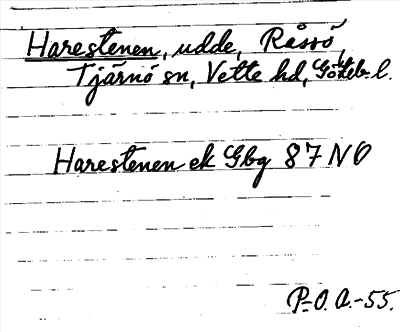 Harestenen, udde, Råssö,
Tjärnö sn, Vette hd, Göteb. l.
Harestenen ek Gbg 87 NO
P.-O. A.-55.